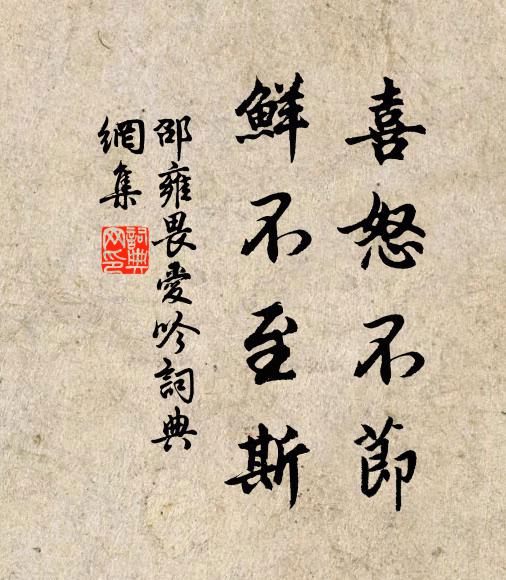 喜怒不節
鮮不至斯
邵雍畏愛吟詞典
網集
詞典
网印